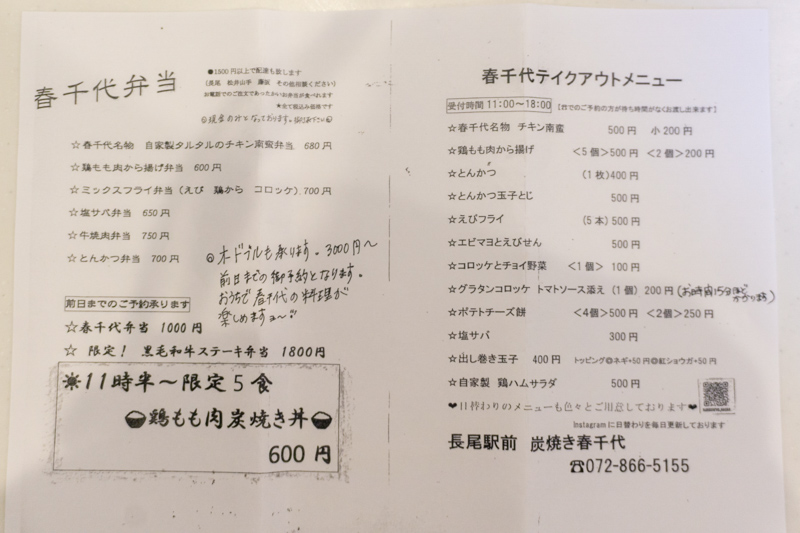 春千代弁当
●1500円以上で配達も致します
(長尾 松井山手 藤阪 その他相談ください)
お電話でのご注文であったかいお弁当が食べれます
*全て税込み価格です
◎現金のみとなっております。
☆春千代名物 自家製タルタルのチキン南蛮弁当 680円
☆鶏もも肉から揚げ弁当 600円
☆ミックスフライ弁当(えび 鶏から コロッケ)700円
☆塩サバ弁当 650円
☆牛焼肉弁当 750円
☆とんかつ弁当 700円
◎オードブルも承ります。3000円〜
前日までの御予約となります。
おうちで春千代の料理が
楽しめますヨ〜
前日までのご予約承ります
☆春千代弁当 1000円
☆ 限定! 黒毛和牛ステーキ弁当 1800円
☀11時半〜限定5食
鶏もも肉炭焼き丼
600円
春千代テイクアウトメニュー
受付時間 11:00〜18:00 【前でのご予約の方が待ち時間がなくお渡し出来ます】
☆春千代名物 チキン南蛮 500円 小200円
☆鶏もも肉から揚げ <5個>500円 <2個>200円
☆とんかつ (1枚)400円
☆とんかつ玉子とじ 500円
☆えびフライ (5本)500円
☆エビマヨとえびせん 500円
☆コロッケとチョイ野菜 <1個> 100円
☆グラタンコロッケ トマトソース添え(1個) 200円(お時間15分ほどかかります)
☆ポテトチーズ餅 <4個>500円 <2個>250円
☆塩サバ 300円
☆出し巻き玉子 400円 トッピング◎ネギ+50円◎紅ショウガ+50円
☆自家製 鶏ハムサラダ 500円
❤日替わりのメニューも色々とご用意しております❤
Instagramに日替わりを毎日更新しております
長尾駅前 炭焼き春千代
☎072-866-5155